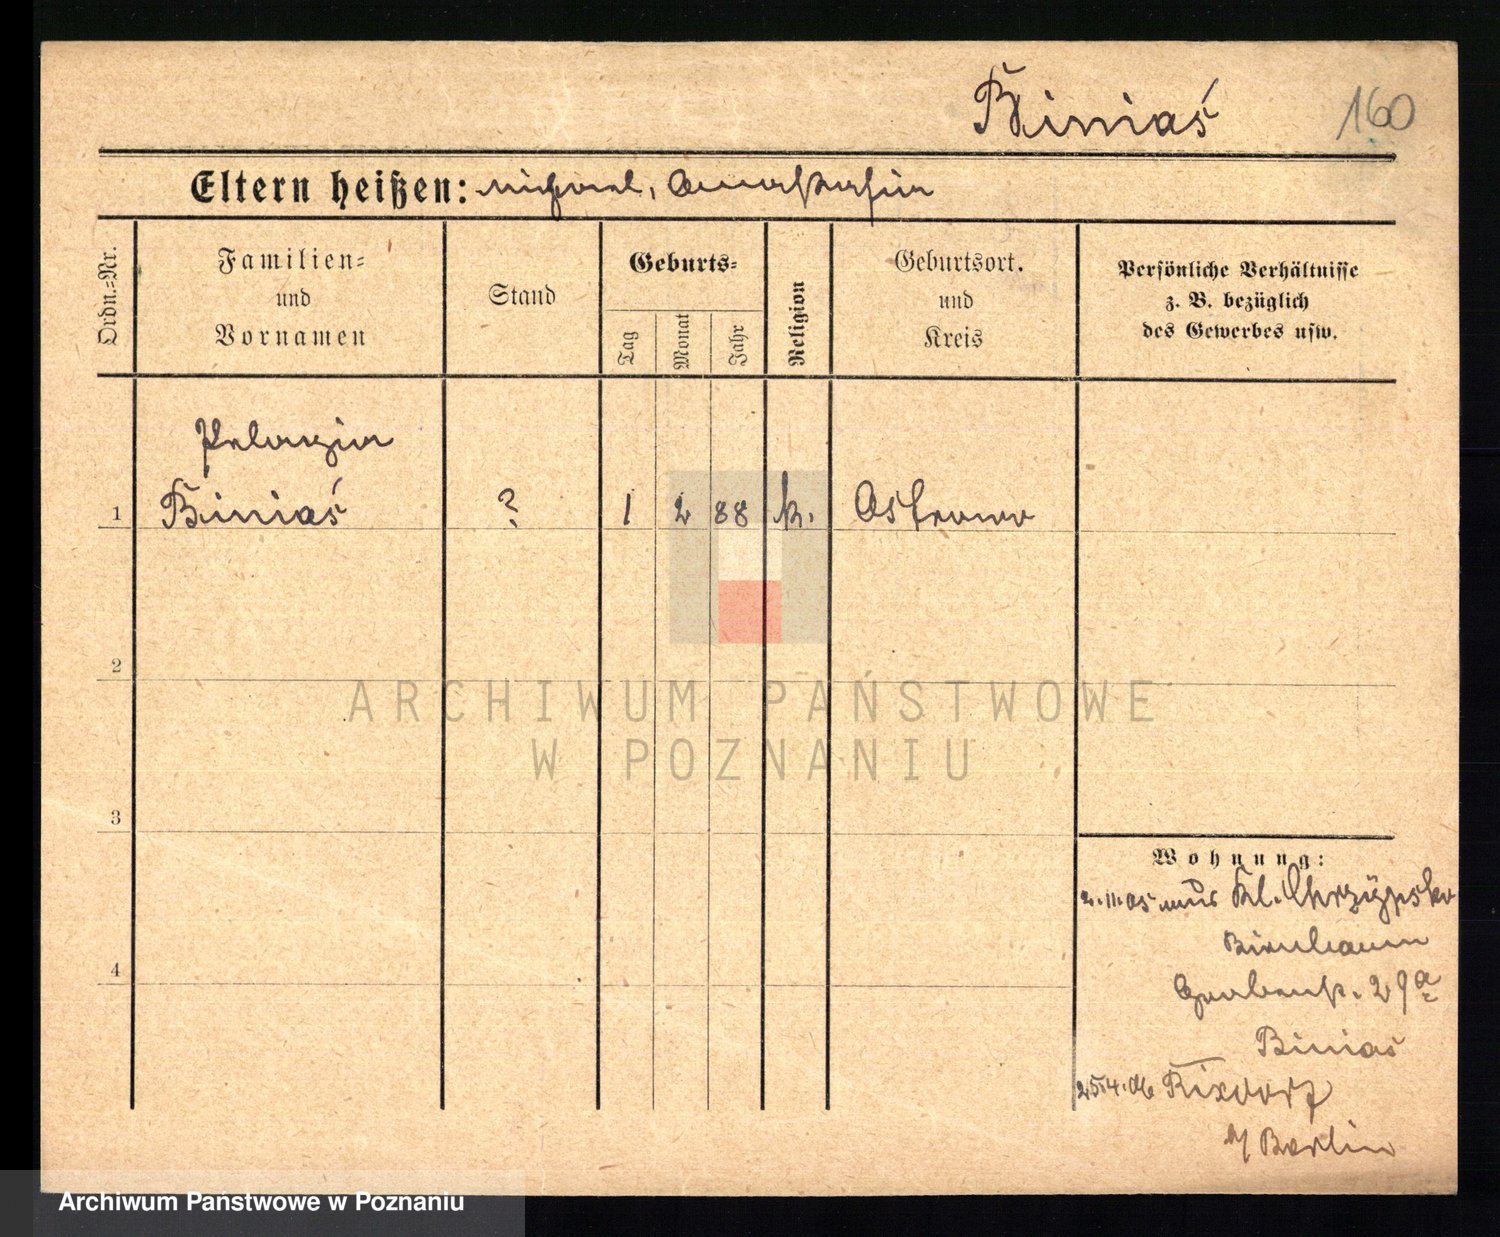 Biniaś 160
Eltern heißen: Michael, Anastasia
Ordn.-Nr.
Familien-
und
Vornamen
Stand
Geburts-
Tag
Monat
Jahr
Religion
Geburtsort.
und
Kreis
Persönliche Verhältnisse
z. B. bezüglich
des Gewerbes usw.
Pelagia
1 Biniaś ? 1 2 88 k. Ostrowo
2
ARCHIWUM PAŃSTWOWE
W POZNANIU
3
Wohnung:
2.11.05 aus Kl. Chrzypsko
Birnbaum
4
Grabenstr. 29a
Biniaś
25.4.06 Rixdorf
b/ Berlin
Archiwum Państwowe w Poznaniu